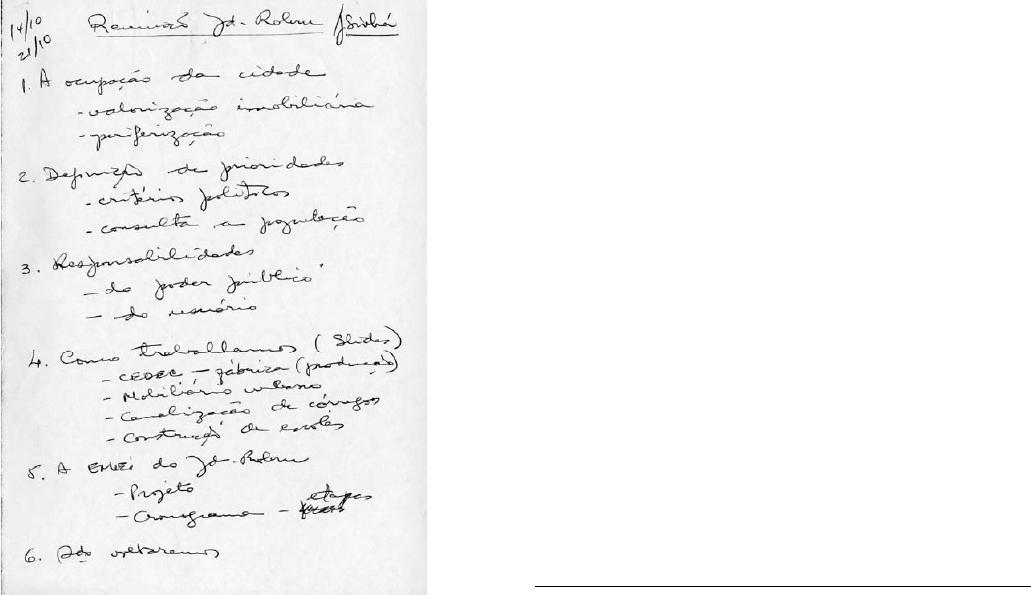 14/10
21/10
Reunião Jd. J Sinhá
1. A ocupação da cidade
- valorização imobiliária
- periferização
2. Definição de prioridades
- critérios políticos
- consulta a população
3. Responsabilidades
- do poder público
- do usuário
4. Como trabalhamos (Slides)
- CEDEC - fábrica (produção)
- Mobiliário urbano
- Canalização de córregos
- Construção de escolas
5. A EMEI do Jd.
- Projeto
- Cronograma - etapas
6. voltaremos